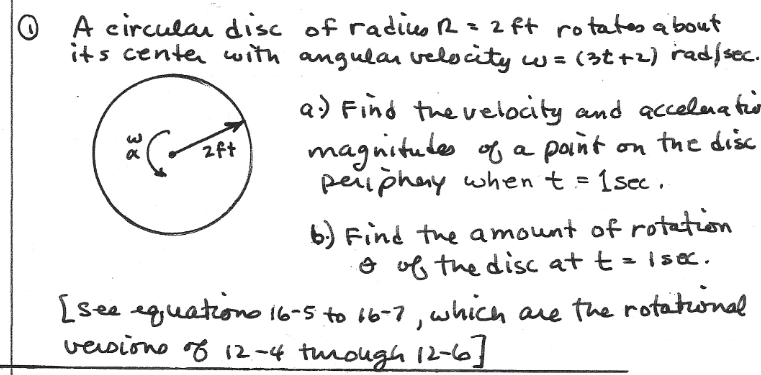 ① A circular disc of radius R = 2 ft rotates about
its center with angular velocity ω = (3t+2) rad/sec.
a.) Find the velocity and acceleratio
magnitudes of a point on the disc
periphery when t = 1 sec.
ω
α
2ft
b.) Find the amount of rotation
θ of the disc at t = 1 sec.
[see equations 16-5 to 16-7, which are the rotational
versions of 12-4 through 12-6]